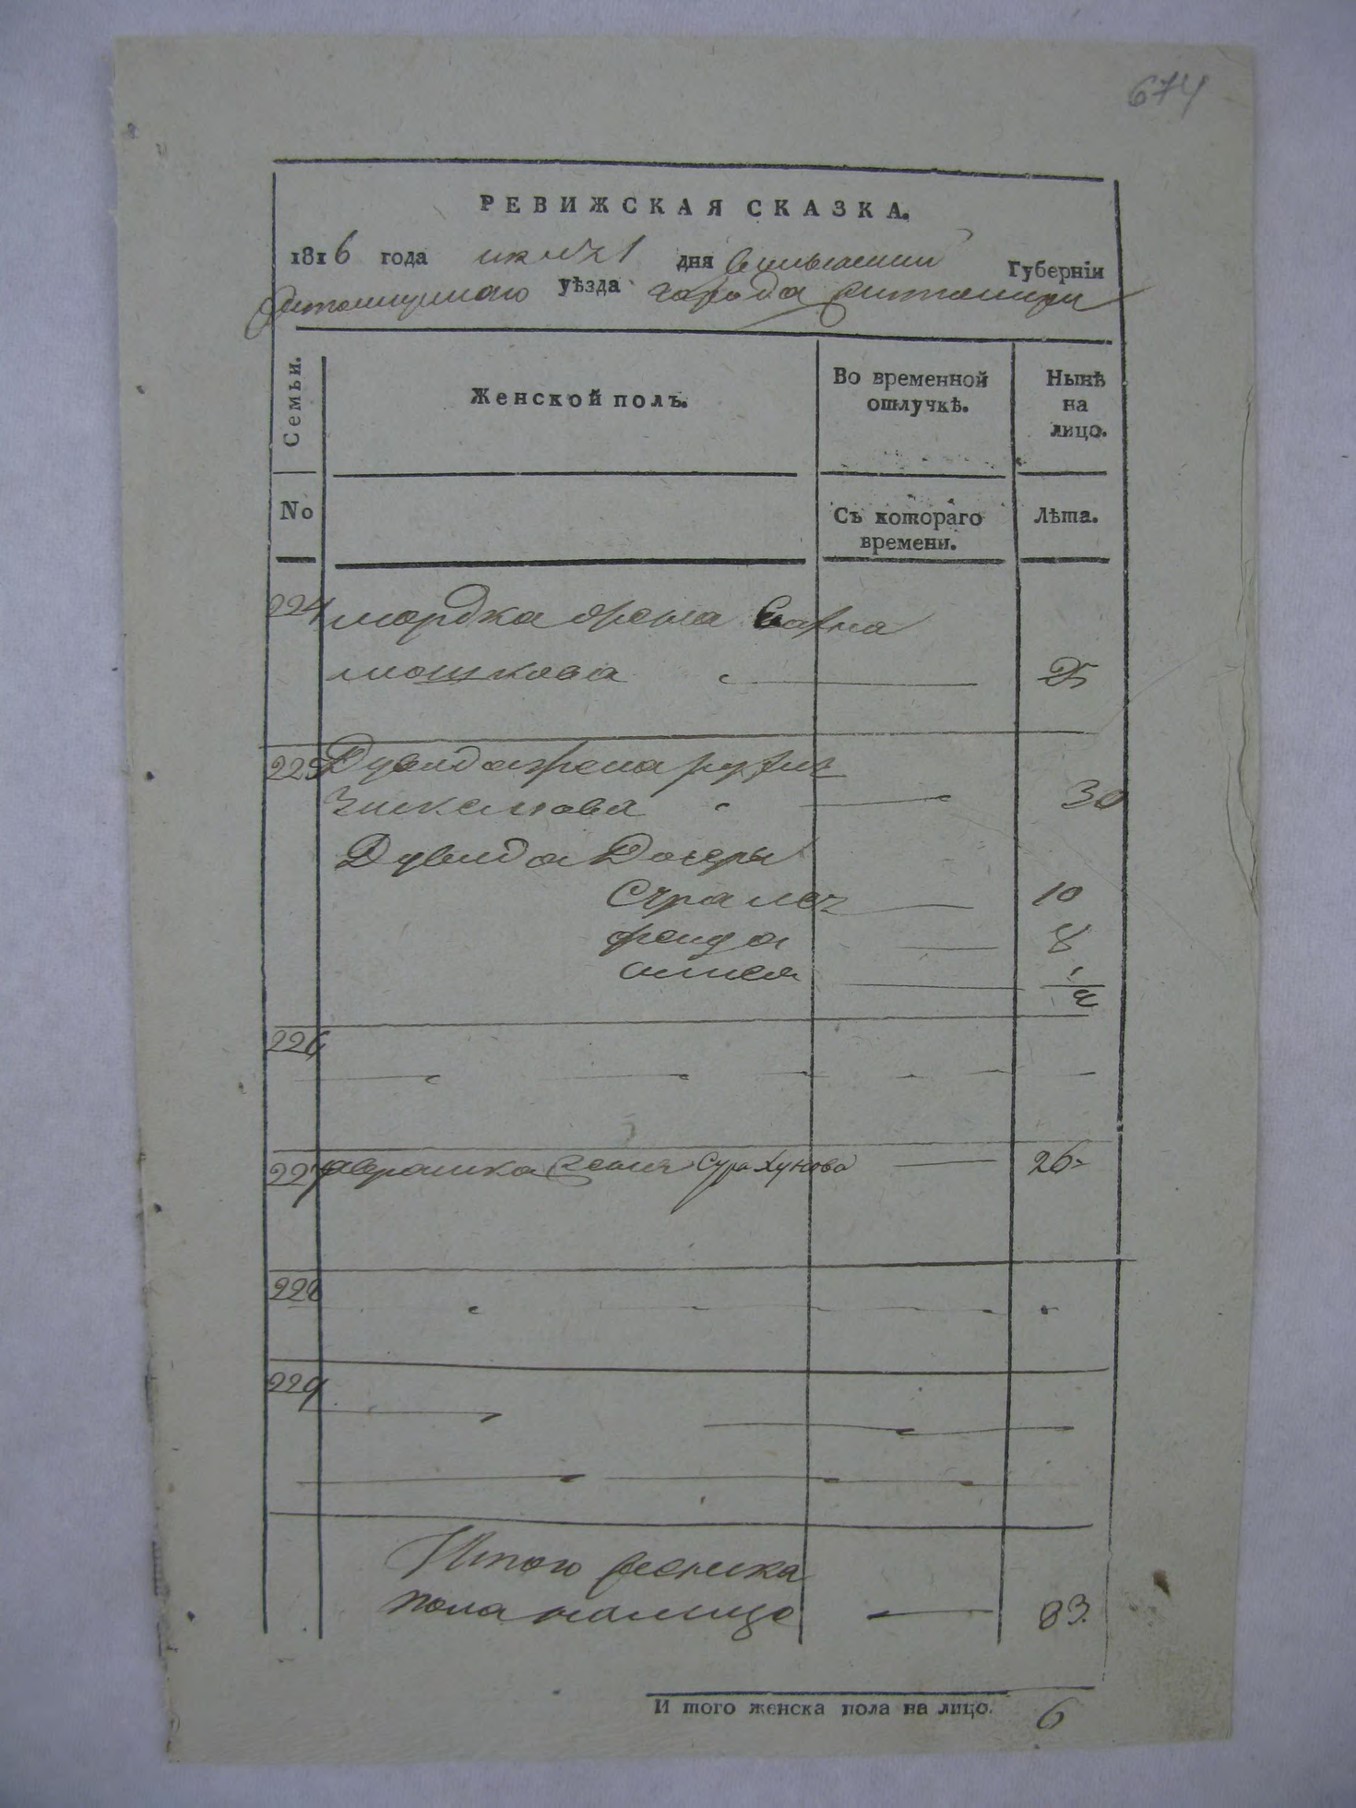 674
РЕВИЖСКАЯ СКАЗКА.
1816 года июня 1 дня Волынской Губерніи
Житомирского уѣзда города Житомира
Семьи.
Женской полъ.
Во временной
отлучкѣ.
Нынѣ
на
лицо.
No
Съ котораго
времени.
Лѣта.
224 мордка жена
мошкова 25
225 Дувида жена рухля
30
Дувида Дочеры
10
фейга 8
1/2
226
227 жена Сура 26
228
229
Итого женска
пола налицо 83
И того женска пола на лицо. 6